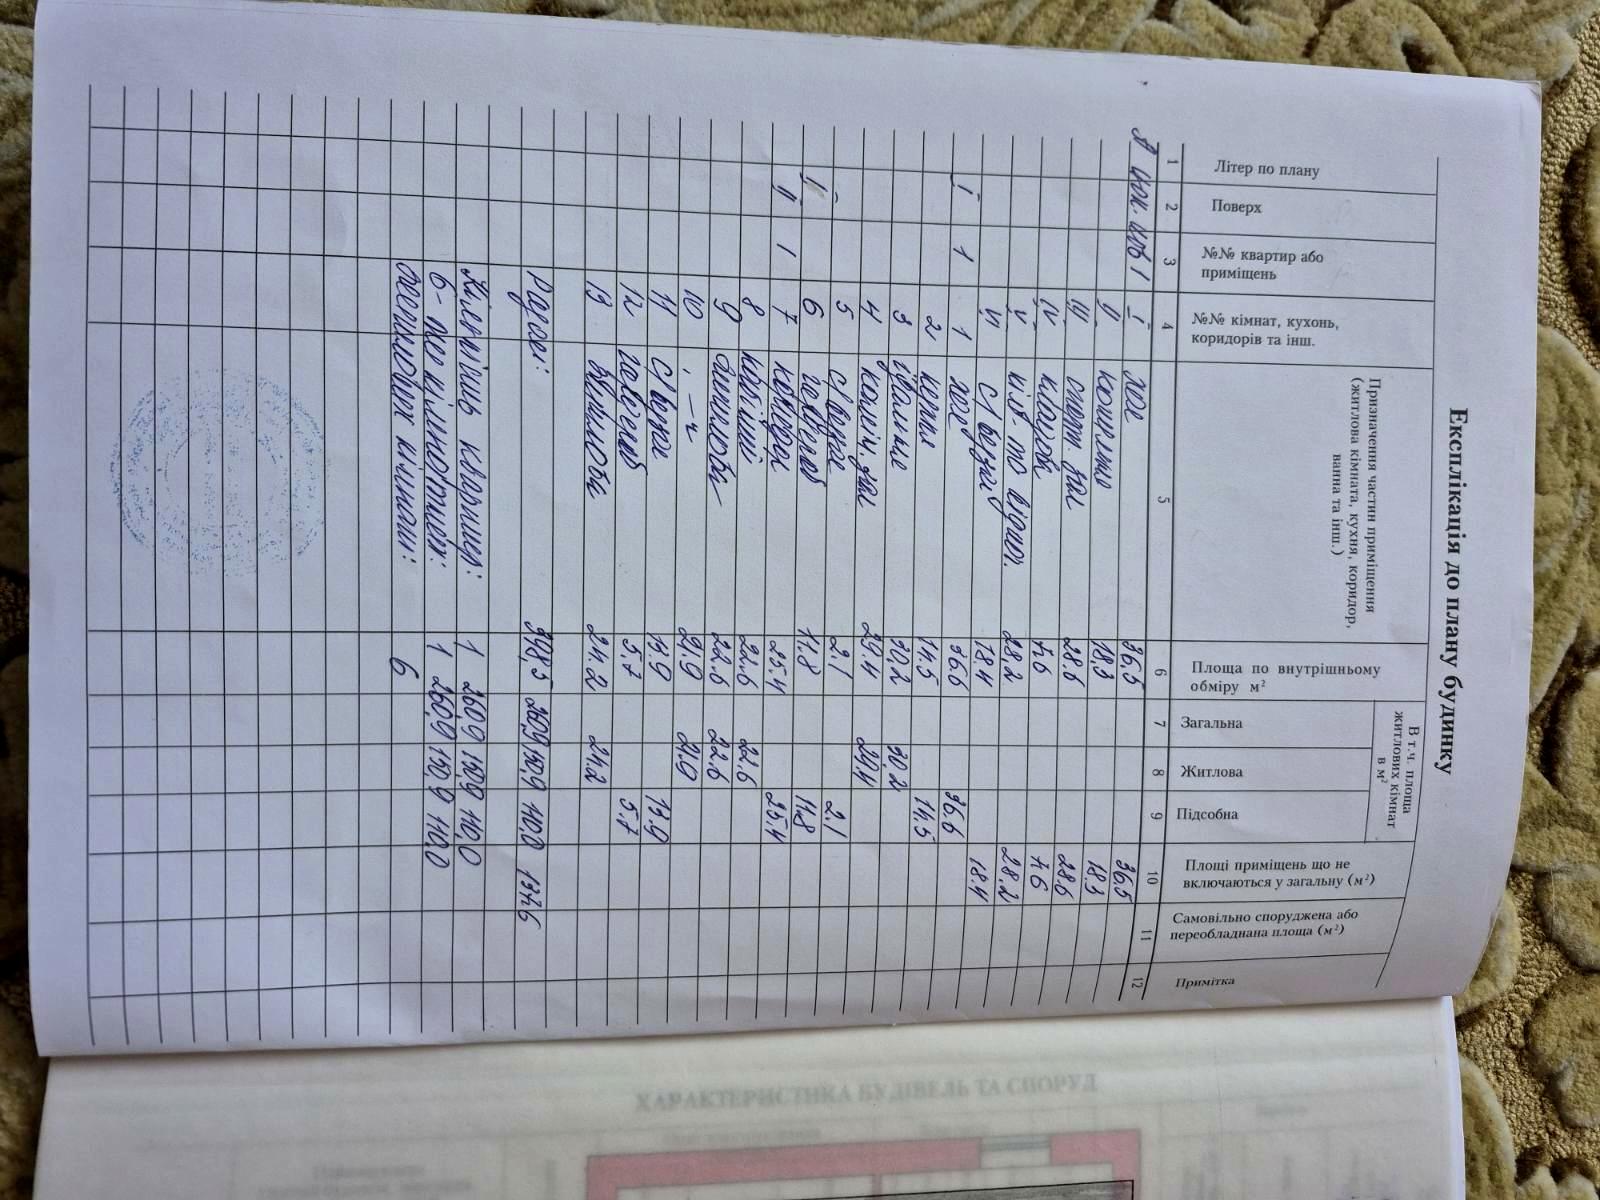 Експлікація до плану будинку
Літер по плану
Поверх
№№ квартир або приміщень
№№ кімнат, кухонь, коридорів та інш.
Призначення частин приміщення (житлова кімната, кухня, коридор, ванна та інш.)
Площа по внутрішньому обміру м²
В т.ч. площа житлових кімнат в м²
Загальна
Житлова
Підсобна
Площі приміщень що не включаються у загальну (м²)
Самовільно споруджена або переобладнана площа (м²)
Примітка
1 2 3 4 5 6 7 8 9 10 11 12
цок. пов 1 I хол 36.5 36.5
II 18.3 18.3
III спорт. зал 28.6 28.6
IV кладова 7.6 7.6
V 28.2 28.2
VI с/вузол 18.4 18.4
I 1 1 хол 36.6 36.6
2 кухня 14.5 14.5
3 їдальня 30.2 30.2
4 камін. зал 29.4 29.4
5 с/вузол 2.1 2.1
6 11.8 11.8
II 1 7 коридор 25.4 25.4
8 кабінет 22.6 22.6
9 дитяча 22.6 22.6
10 -"- 21.9 21.9
11 с/вузол 13.9 13.9
12 5.7 5.7
13 24.2 24.2
Разом: 398,5 260,9 150,9 110,0 137,6
Кількість квартир: 1 260,9 150,9 110,0
6-ти кімнатних: 1 260,9 150,9 110,0
житлових кімнат: 6
ХАРАКТЕРИСТИКА БУДІВЕЛЬ ТА СПОРУД